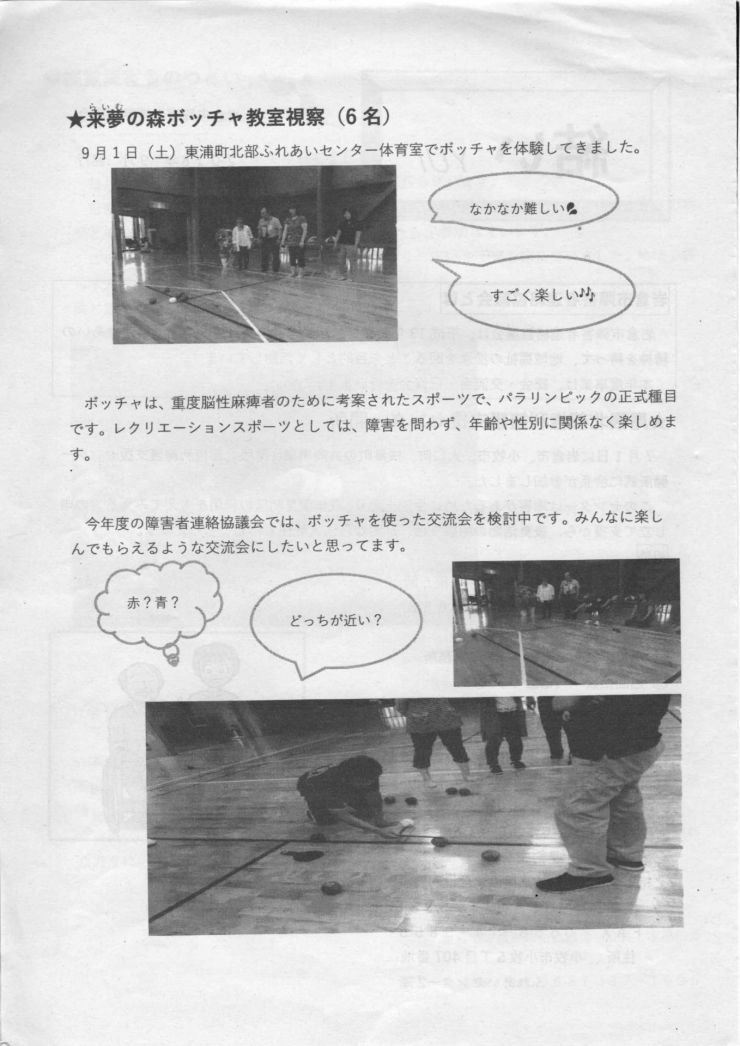 らいむ
★来夢の森ボッチャ教室視察（6名）
9月1日（土）東浦町北部ふれあいセンター体育室でボッチャを体験してきました。
なかなか難しい
すごく楽しい♪♪
ボッチャは、重度脳性麻痺者のために考案されたスポーツで、パラリンピックの正式種目
です。レクリエーションスポーツとしては、障害を問わず、年齢や性別に関係なく楽しめま
す。
今年度の障害者連絡協議会では、ボッチャを使った交流会を検討中です。みんなに楽し
んでもらえるような交流会にしたいと思ってます。
赤？青？
どっちが近い？